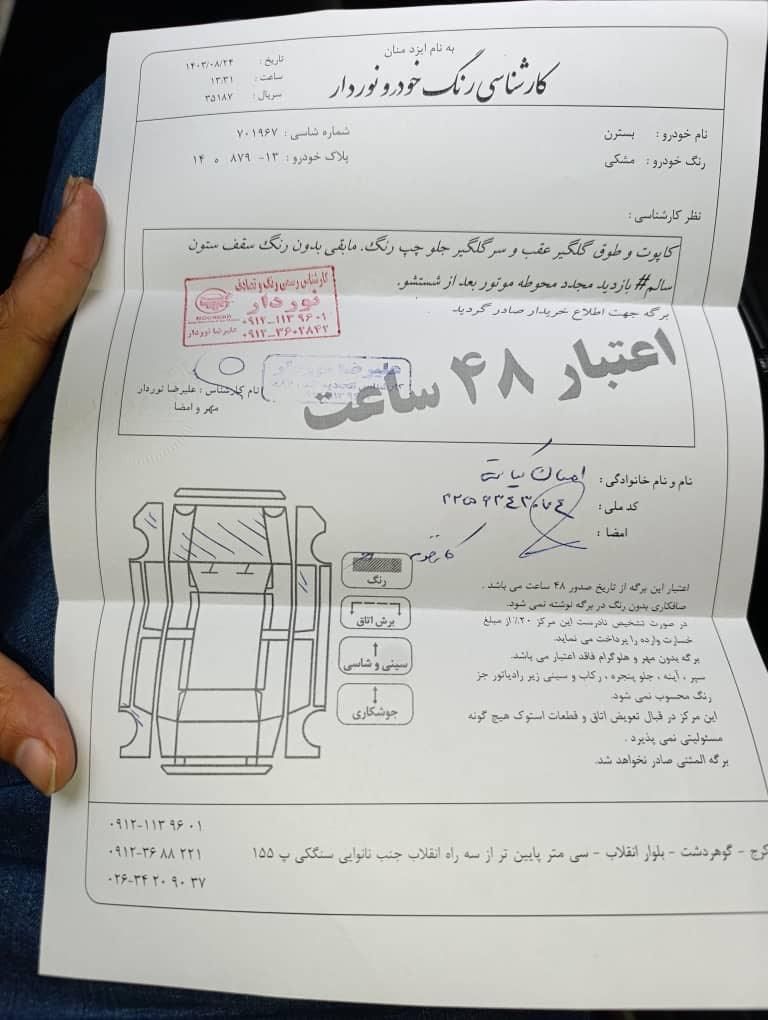 به نام ایزد منان
کارشناسی رنگ خودرو نوردار
تاریخ : ۱۴۰۳/۰۸/۲۴
ساعت : ۱۳:۳۱
سریال : ۳۵۱۸۷
نام خودرو : بسترن
شماره شاسی : ۷۰۱۹۶۷
رنگ خودرو : مشکی
پلاک خودرو : ۱۳- ۸۷۹ ه ۱۴
نظر کارشناسی :
کاپوت و طوق گلگیر عقب و سرگلگیر جلو چپ رنگ. مابقی بدون رنگ سقف ستون
سالم# بازدید مجدد محوطه موتور بعد از شستشو.
برگه جهت اطلاع خریدار صادر گردید
کارشناس رسمی رنگ و تصادف
نوردار
۰۹۱۲-۱۱۳۹۶۰۱
۰۹۱۲-۳۶۰۲۸۴۲
علیرضا نوردار
NOORDAR
اعتبار ۴۸ ساعت
نام کارشناس : علیرضا نوردار
مهر و امضا
نام و نام خانوادگی :
کد ملی :
امضا :
رنگ
برش اتاق
سینی و شاسی
جوشکاری
اعتبار این برگه از تاریخ صدور ۴۸ ساعت می باشد .
صافکاری بدون رنگ در برگه نوشته نمی شود.
در صورت تشخیص نادرست این مرکز ۲۰٪ از مبلغ
خسارت وارده را پرداخت می نماید.
برگه بدون مهر و هلوگرام فاقد اعتبار می باشد.
سپر ، آینه ، جلو پنجره ، رکاب و سینی زیر رادیاتور جز
رنگ محسوب نمی شود.
این مرکز در قبال تعویض اتاق و قطعات استوک هیچ گونه
مسئولیتی نمی پذیرد .
برگه المثنی صادر نخواهد شد.
۰۹۱۲-۱۱۳ ۹۶ ۰۱
۰۹۱۲-۳۶ ۸۸ ۲۲۱
۰۲۶-۳۴ ۲۰ ۹۰ ۳۷
کرج - گوهردشت - بلوار انقلاب - سی متر پایین تر از سه راه انقلاب جنب نانوایی سنگکی پ ۱۵۵